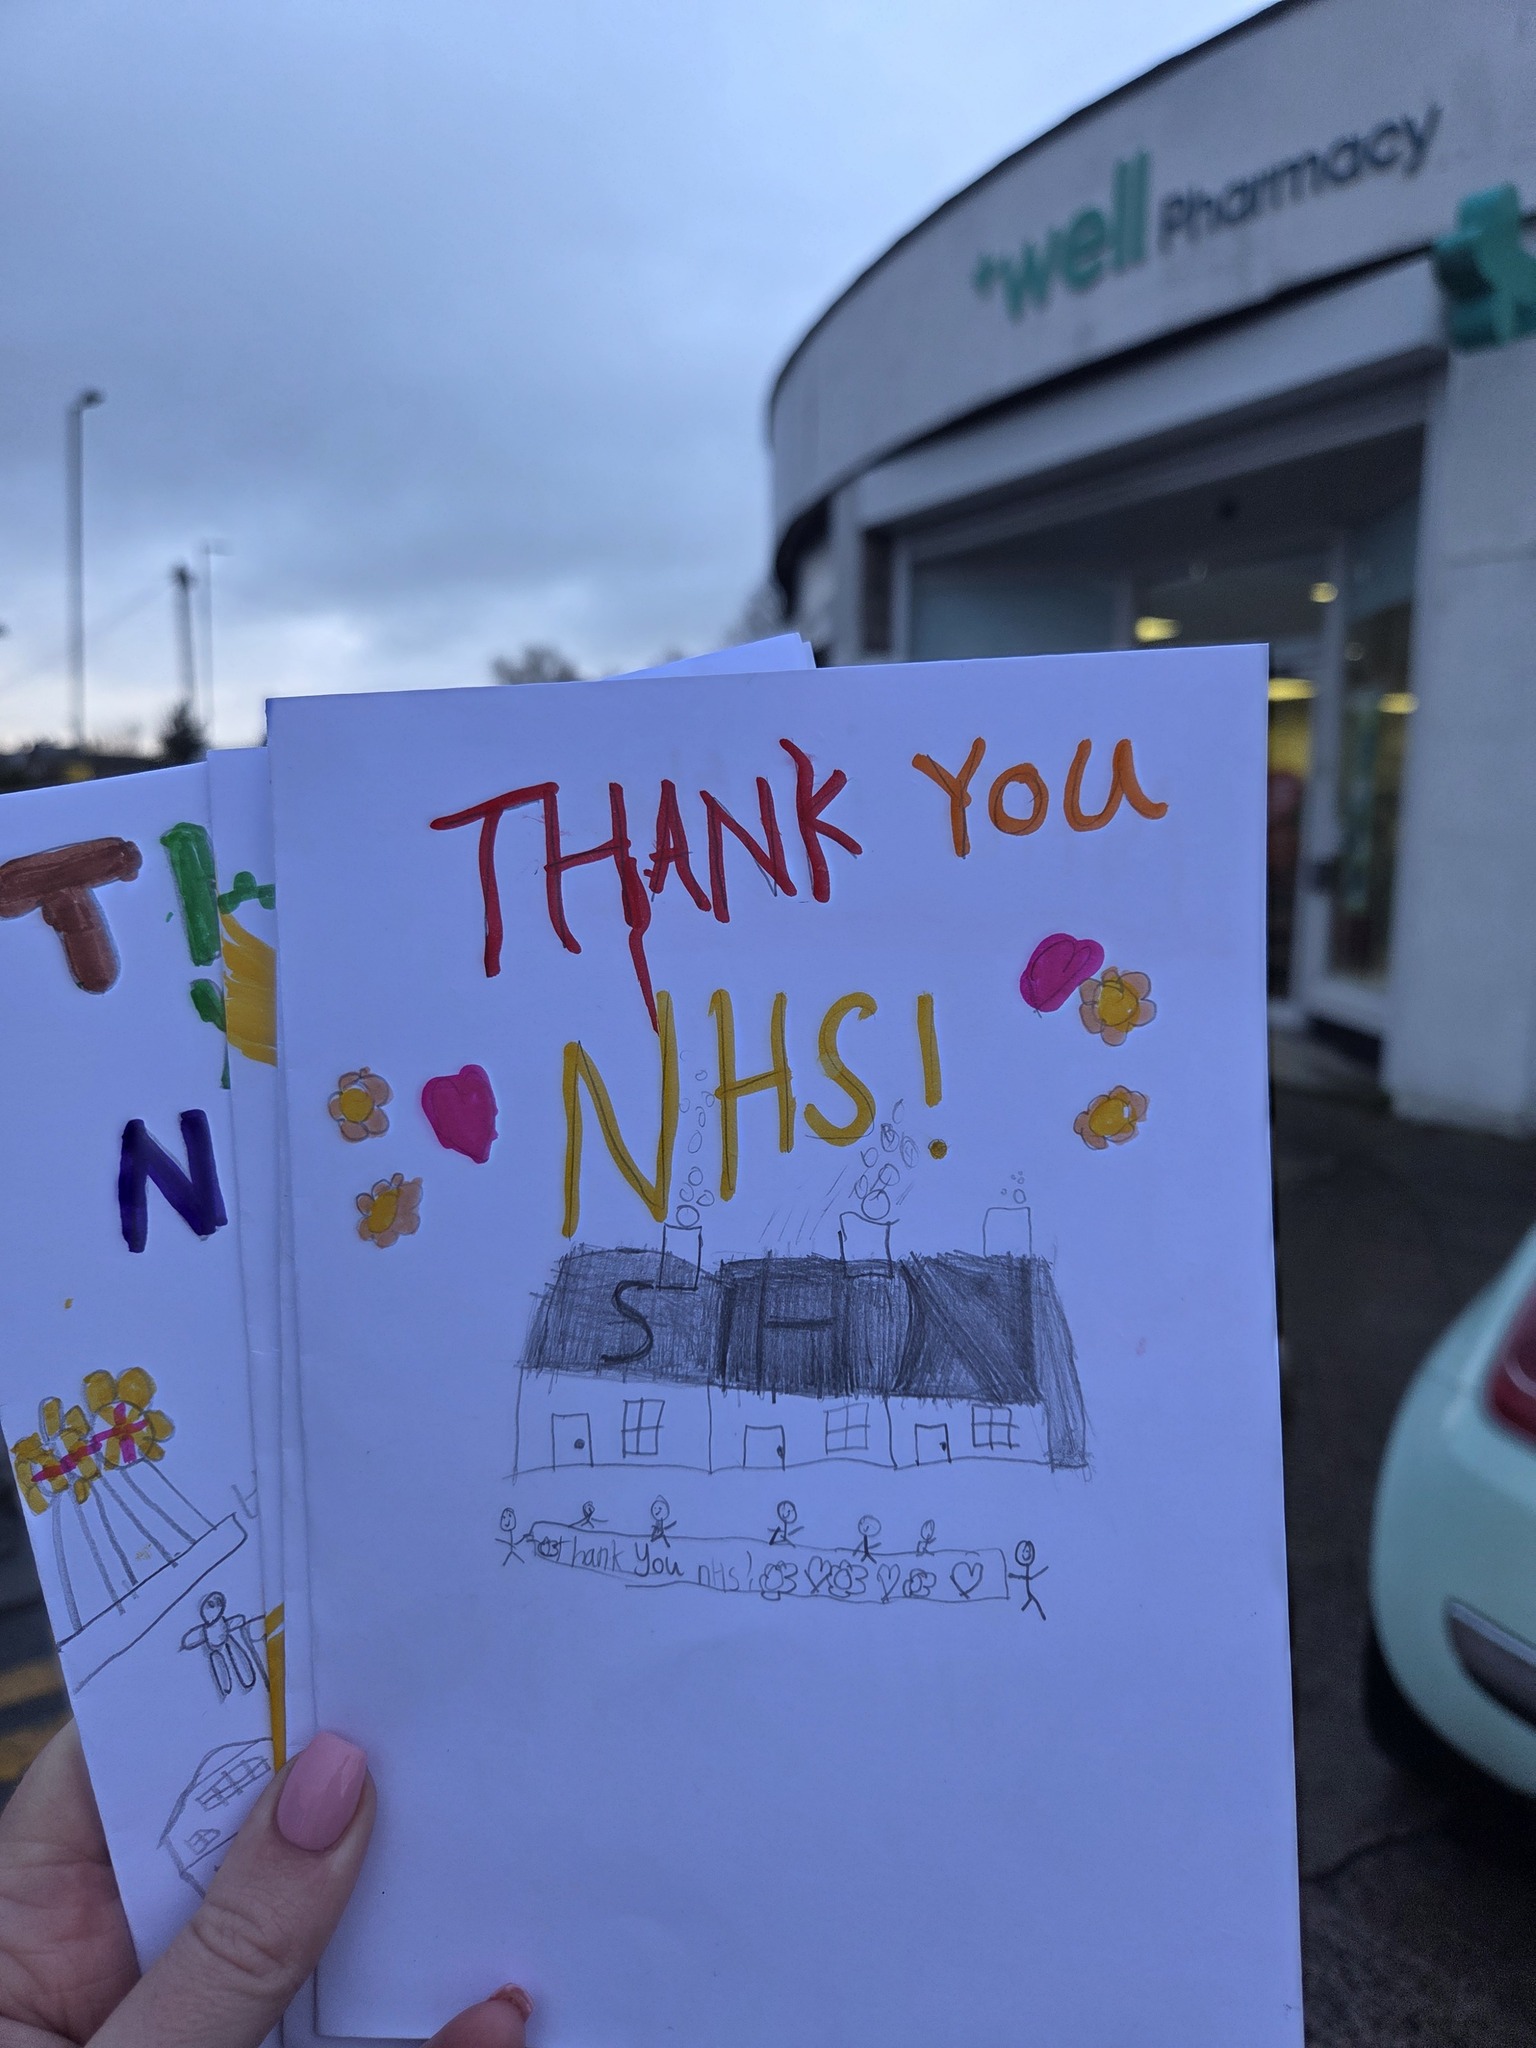 +well Pharmacy
THANK YOU
NHS!
S H N
Thank You nhs!
TH
N